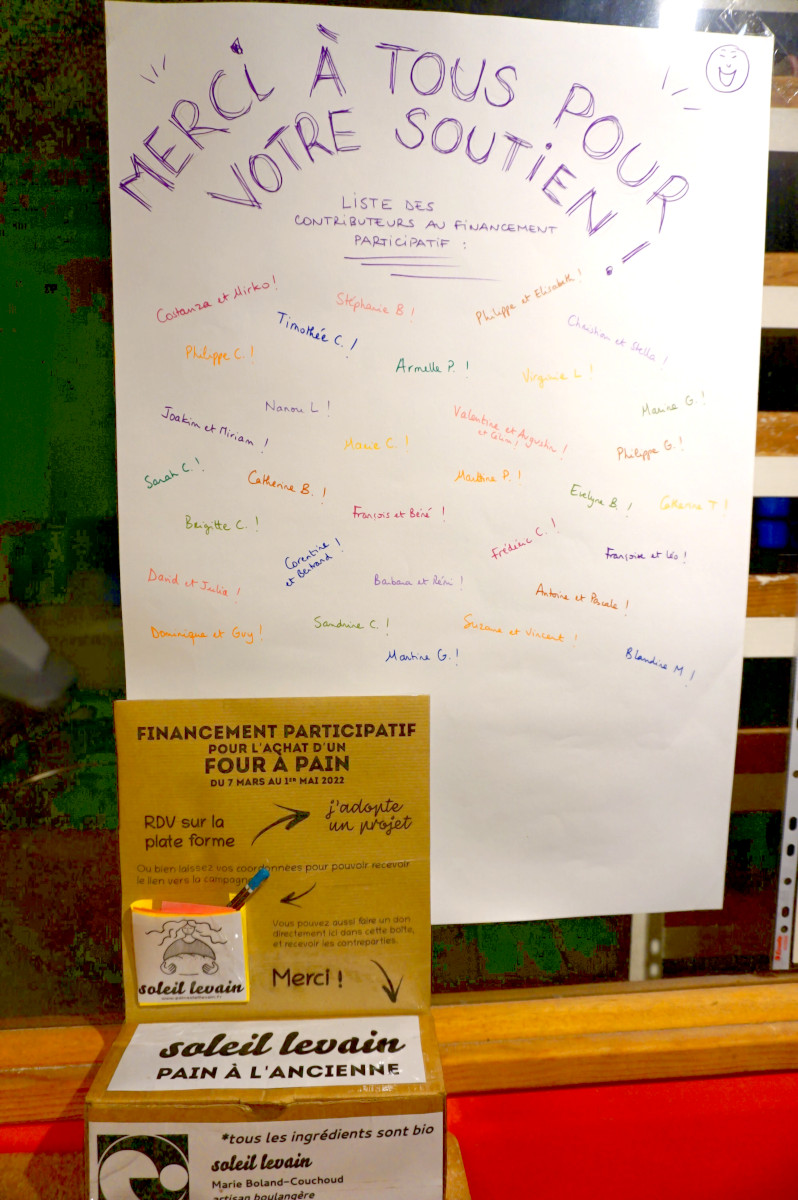 MERCI À TOUS POUR
VOTRE SOUTIEN !
LISTE DES
CONTRIBUTEURS AU FINANCEMENT
PARTICIPATIF :
Costanza et Mirko !
Stéphanie B !
Philippe et Elisabeth !
Timothée C. !
Christian et Stella !
Philippe C. !
Armelle P. !
Virginie L !
Nanou L !
Marine G. !
Joakim et Miriam !
Marie C. !
Valentine et Augustin !
et
Philippe G. !
Sarah C. !
Catherine B. !
Martine P. !
Evelyne B. !
Catherine T !
Brigitte C. !
François et Béné !
Frédéric C. !
Corentine !
et Bertrand
Françoise et Léo !
David et Julia !
Barbara et Rémi !
Antoine et Pascale !
Dominique et Guy !
Sandrine C. !
Suzane et Vincent !
Martine G. !
Blandine M !
FINANCEMENT PARTICIPATIF
POUR L'ACHAT D'UN
FOUR À PAIN
DU 7 MARS AU 1ER MAI 2022
RDV sur la
plate forme
j'adopte
un projet
Ou bien laissez vos coordonnées pour pouvoir recevoir
le lien vers la campagne
Vous pouvez aussi faire un don
directement ici dans cette boîte,
et recevoir les contreparties.
Merci !
soleil levain
soleil levain
PAIN À L'ANCIENNE
*tous les ingrédients sont bio
soleil levain
Marie Boland-Couchoud
artisan boulangère